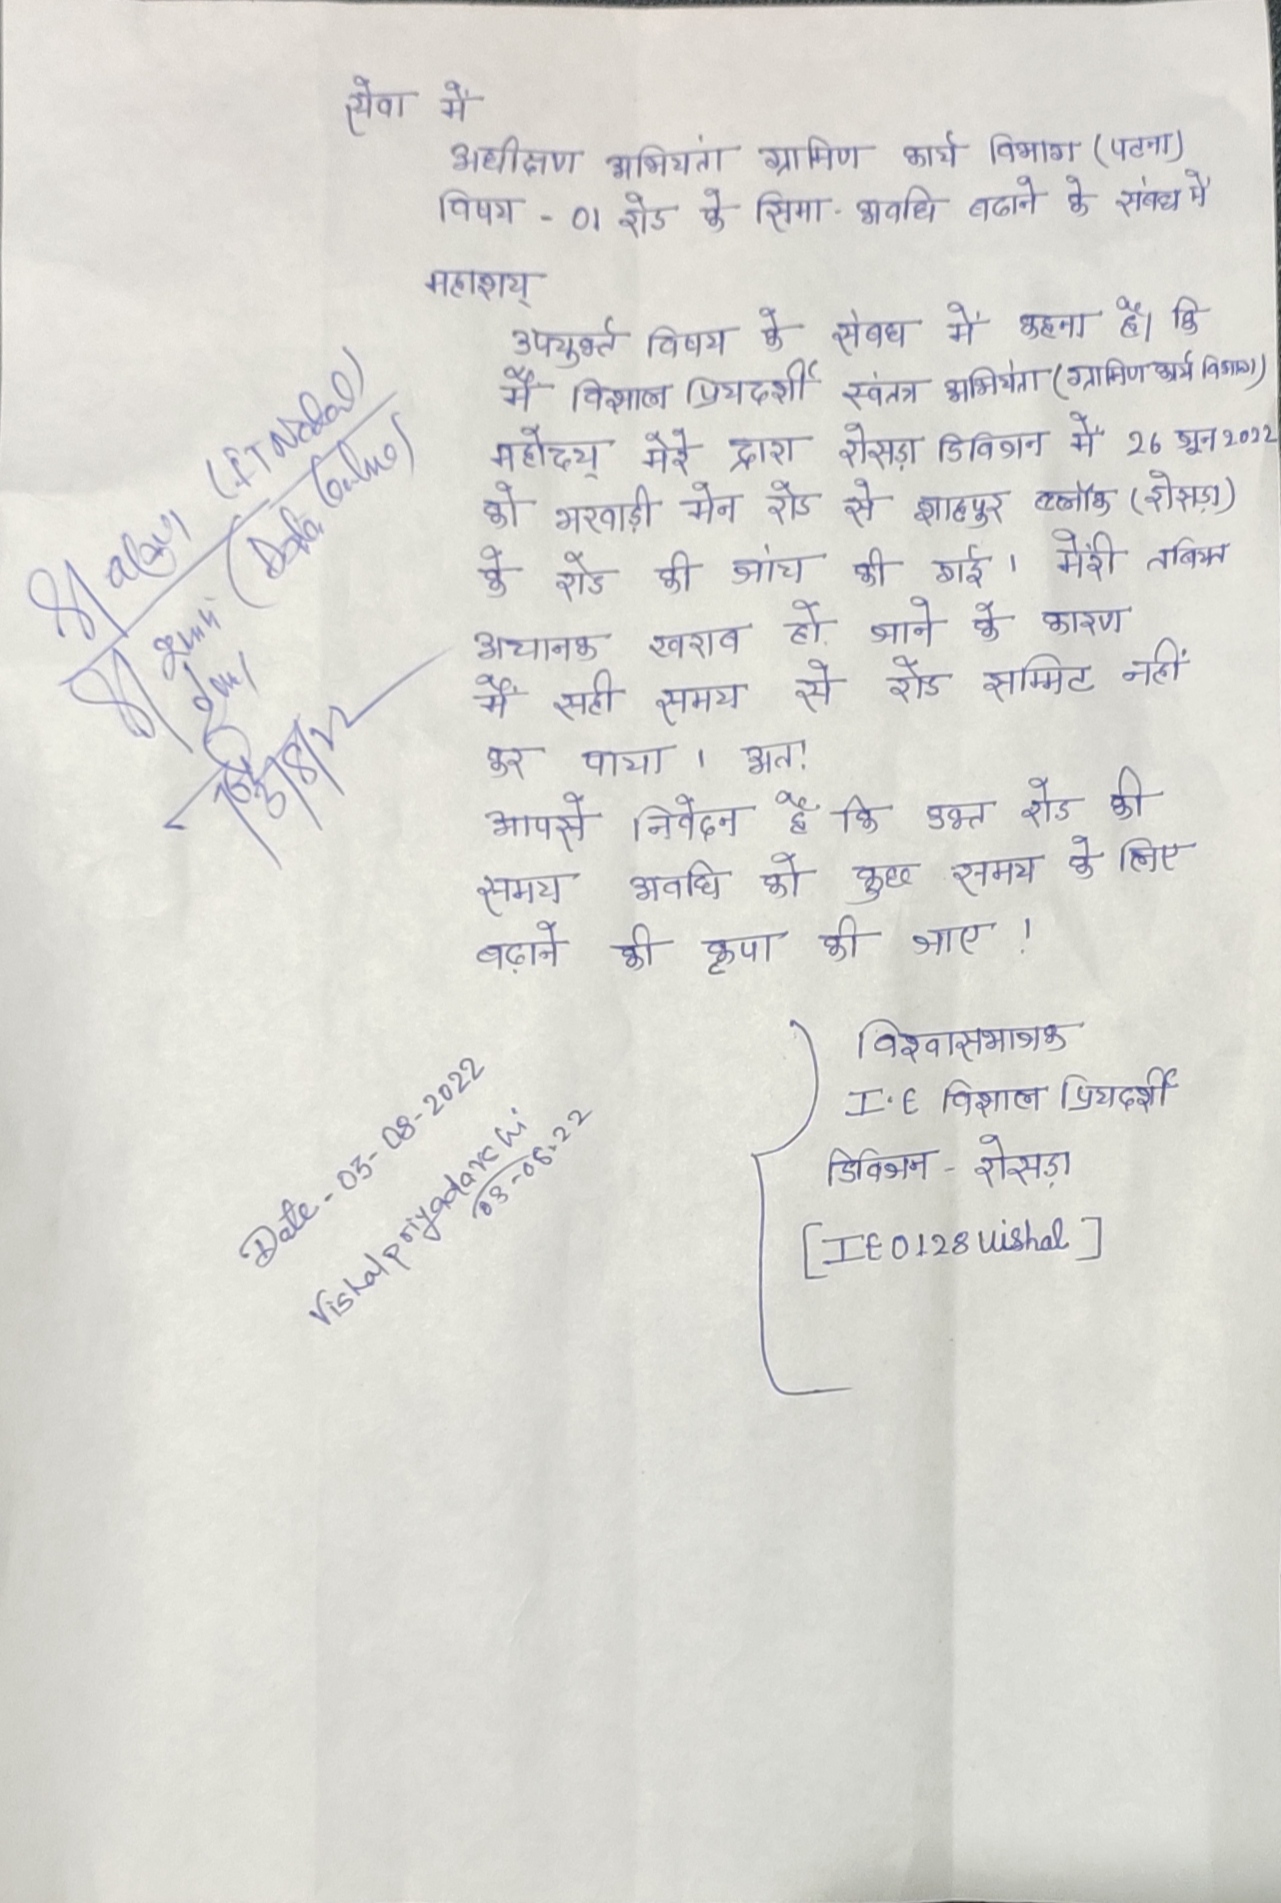 सेवा में
अधीक्षण अभियंता ग्रामिण कार्य विभाग (पटना)
विषय - 01 रोड के सिमा - अवधि बढाने के संबंध में
महाशय्
उपयुक्त विषय के संबध में कहना है। कि
मैं विशाल प्रियदर्शी स्वंतत्र अभियंता (ग्रामिण कार्य विभाग)
महोदय् मेरे द्वारा रोसड़ा डिविजन में 26 जून 2022
को भरवाड़ी मेन रोड से शाहपुर ब्लॉक (रोसड़ा)
के रोड की जांच की गई। मेरी तबियत
अचानक खराब हो जाने के कारण
मैं सही समय से रोड सम्मिट नहीं
कर पाया । अत:
आपसे निवेदन है कि उक्त रोड की
समय अवधि को कुछ समय के लिए
बढ़ाने की कृपा की जाए !
(IT Nodal)
(Data Online)
3/8/22
विश्वासभाजक
I.E विशाल प्रियदर्शी
डिविजन - रोसड़ा
[IE0128Vishal]
Date - 03-08-2022
Vishal priyadarshi
03-08-22